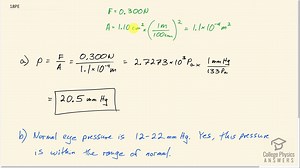 18PE
F = 0.300N
A = 1.10 cm² × (1m / 100cm)² = 1.1×10⁻⁴ m²
a) P = F/A = 0.300N / 1.1×10⁻⁴ m² = 2.7273×10³ Pa × 1 mmHg / 133 Pa
= 20.5 mm Hg
b) Normal eye pressure is 12-22 mm Hg. Yes, this pressure
is within the range of normal.
College Physics
ANSWERS